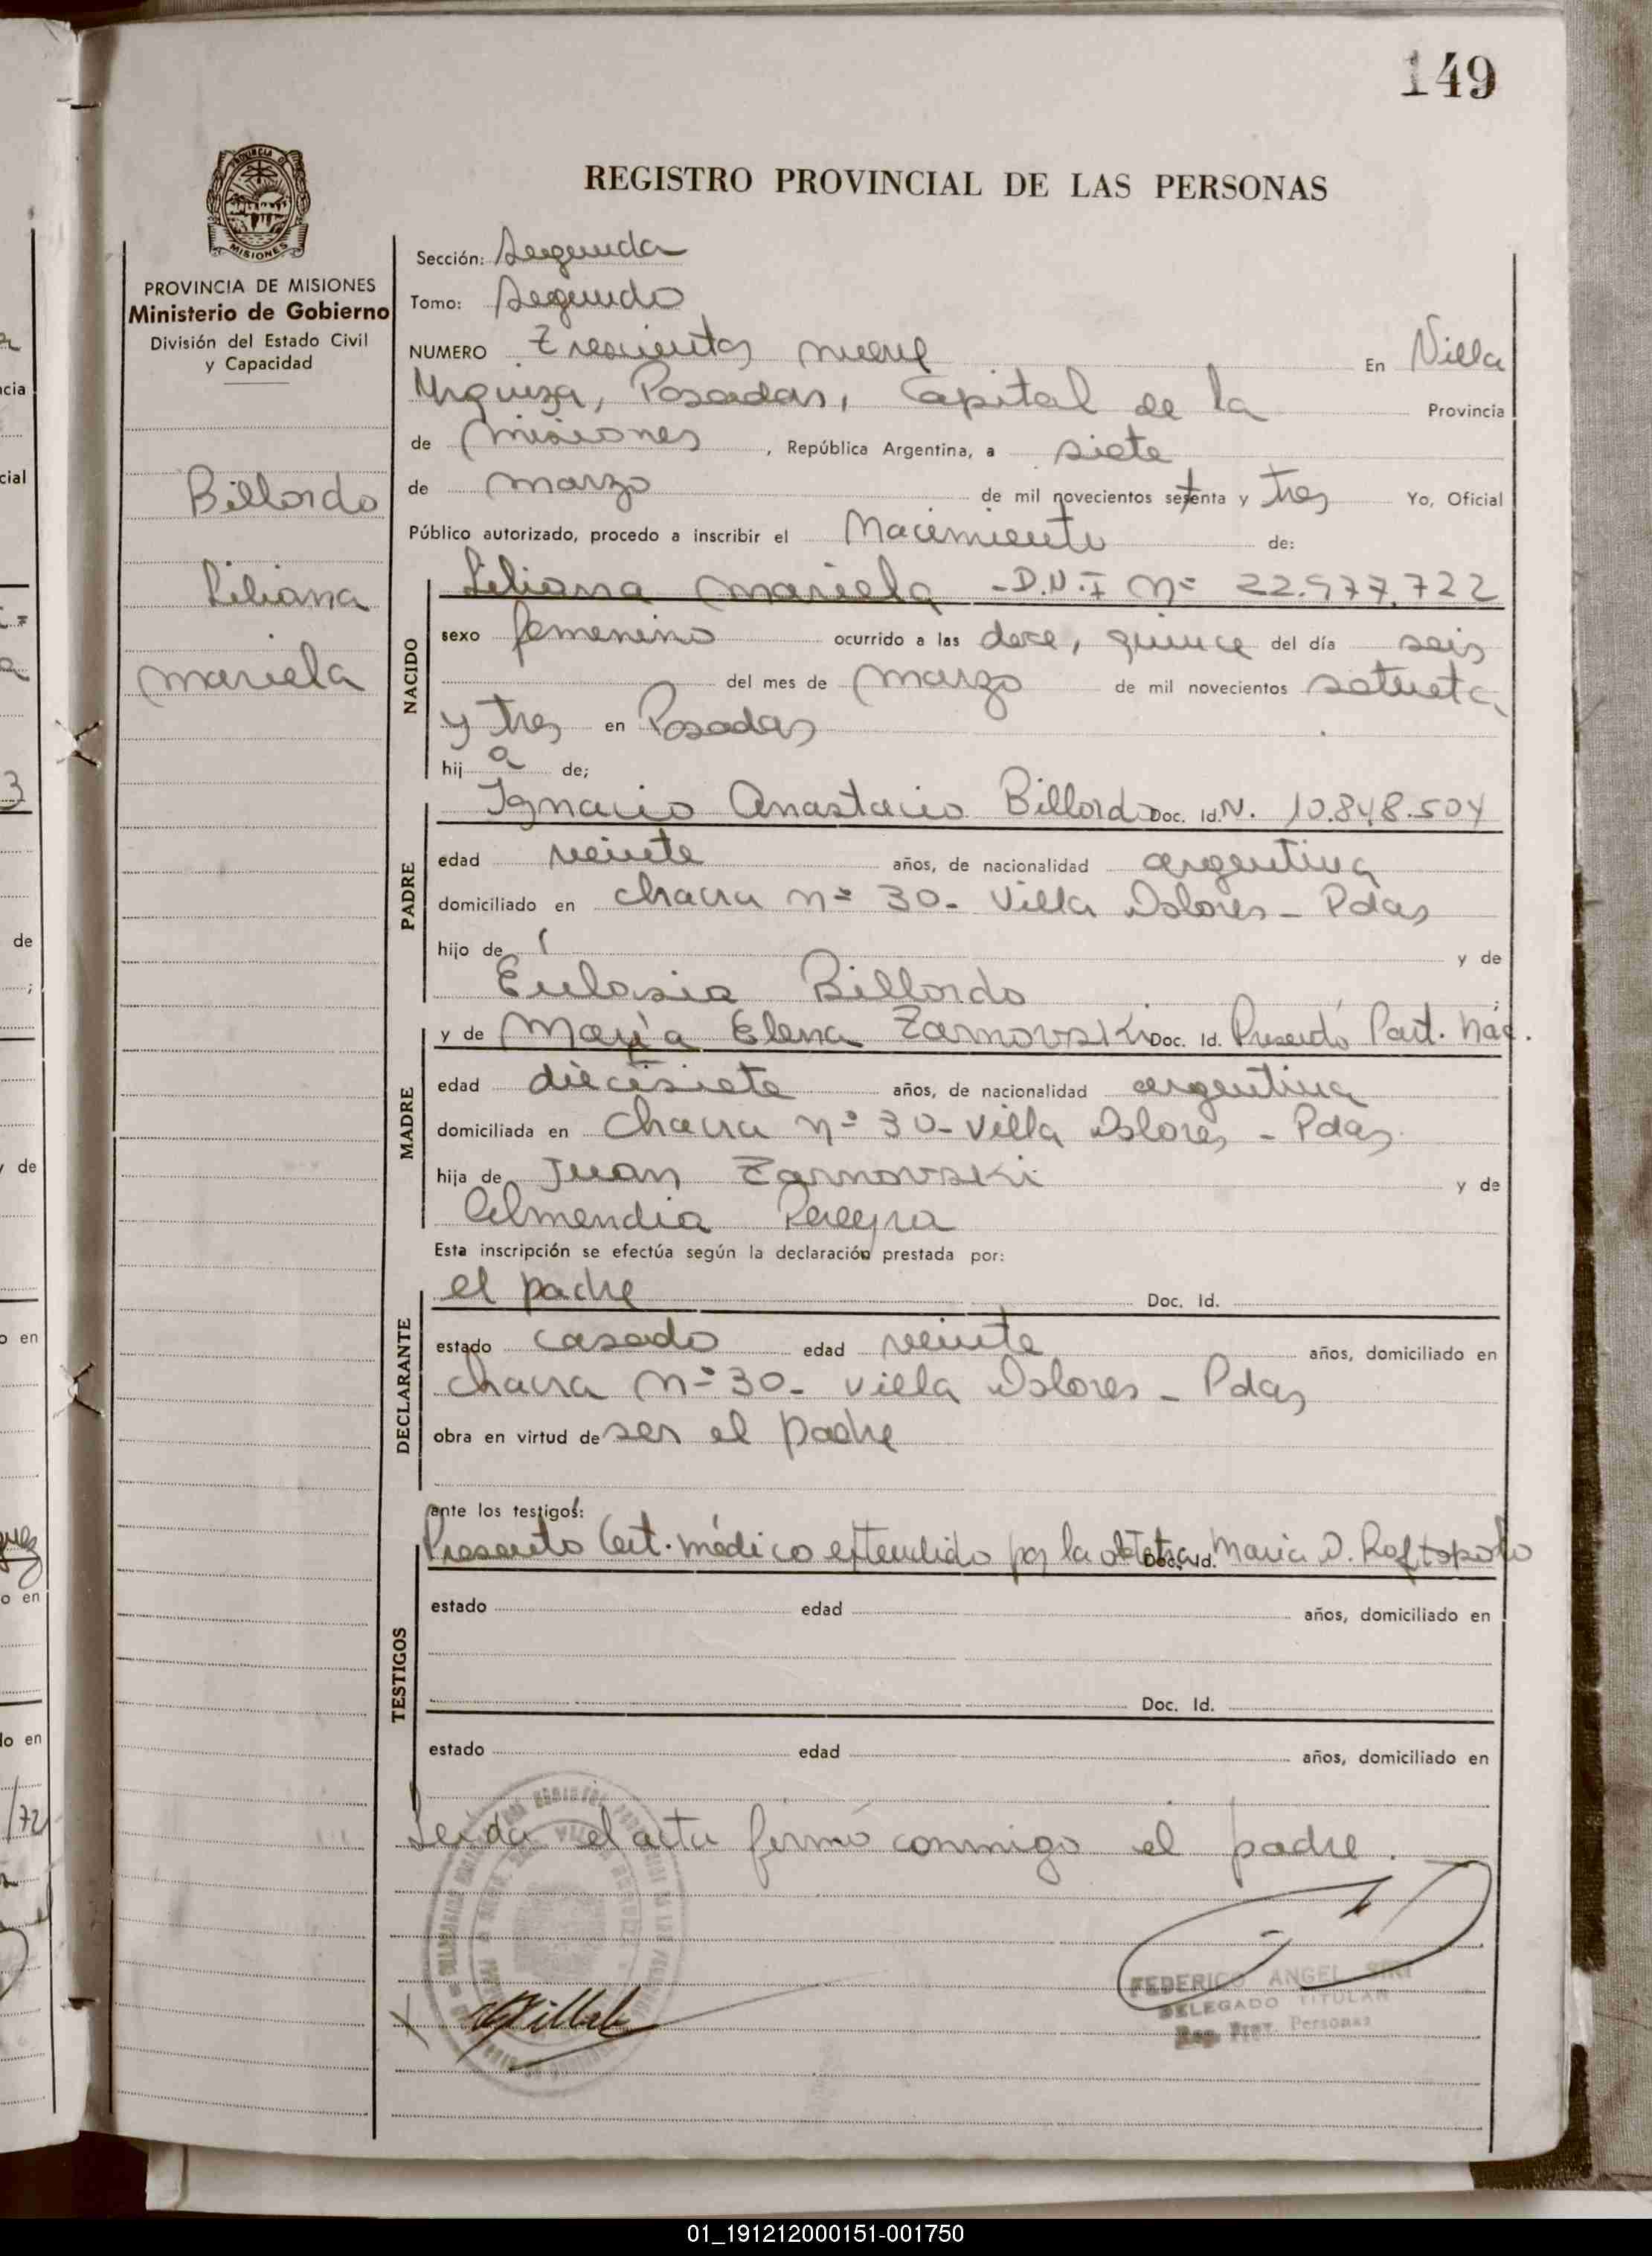 149
REGISTRO PROVINCIAL DE LAS PERSONAS
PROVINCIA DE MISIONES
Ministerio de Gobierno
División del Estado Civil
y Capacidad
Billordo
Liliana
Mariela
Sección: Segunda
Tomo: Segundo
NUMERO Trescientos nueve En Villa
Urquiza, Posadas, Capital de la Provincia
de Misiones, República Argentina, a siete
de marzo de mil novecientos setenta y tres Yo, Oficial
Público autorizado, procedo a inscribir el Nacimiento de:
NACIDO
Liliana Mariela - D.N.I Nº 22.977.722
sexo femenino ocurrido a las doce, quince del día seis
del mes de marzo de mil novecientos setenta
y tres en Posadas
hij a de;
PADRE
Ignacio Anastacio Billordo Doc. Id. N. 10.848.504
edad veinte años, de nacionalidad argentina
domiciliado en chacra nº 30- Villa Dolores - Pdas
hijo de y de
Eulosia Billordo
MADRE
y de María Elena Zarnovski Doc. Id. Presentó Part. Nac.
edad diecisiete años, de nacionalidad argentina
domiciliada en Chacra nº 30- Villa Dolores - Pdas
hija de Juan Zarnovski y de
Almendia Pereyra
Esta inscripción se efectúa según la declaración prestada por:
DECLARANTE
el padre Doc. Id.
estado casado edad veinte años, domiciliado en
chacra Nº 30- Villa Dolores - Pdas
obra en virtud de ser el padre
ante los testigos:
TESTIGOS
Presento Cert. médico extendido por la obstetra Doc. Id. Maria D. Raftopolo
estado edad años, domiciliado en
Doc. Id.
estado edad años, domiciliado en
Leida el acta firmó conmigo el padre.
FEDERICO ANGEL SIRI
DELEGADO TITULAR
Reg. Prov. Personas
01_191212000151-001750